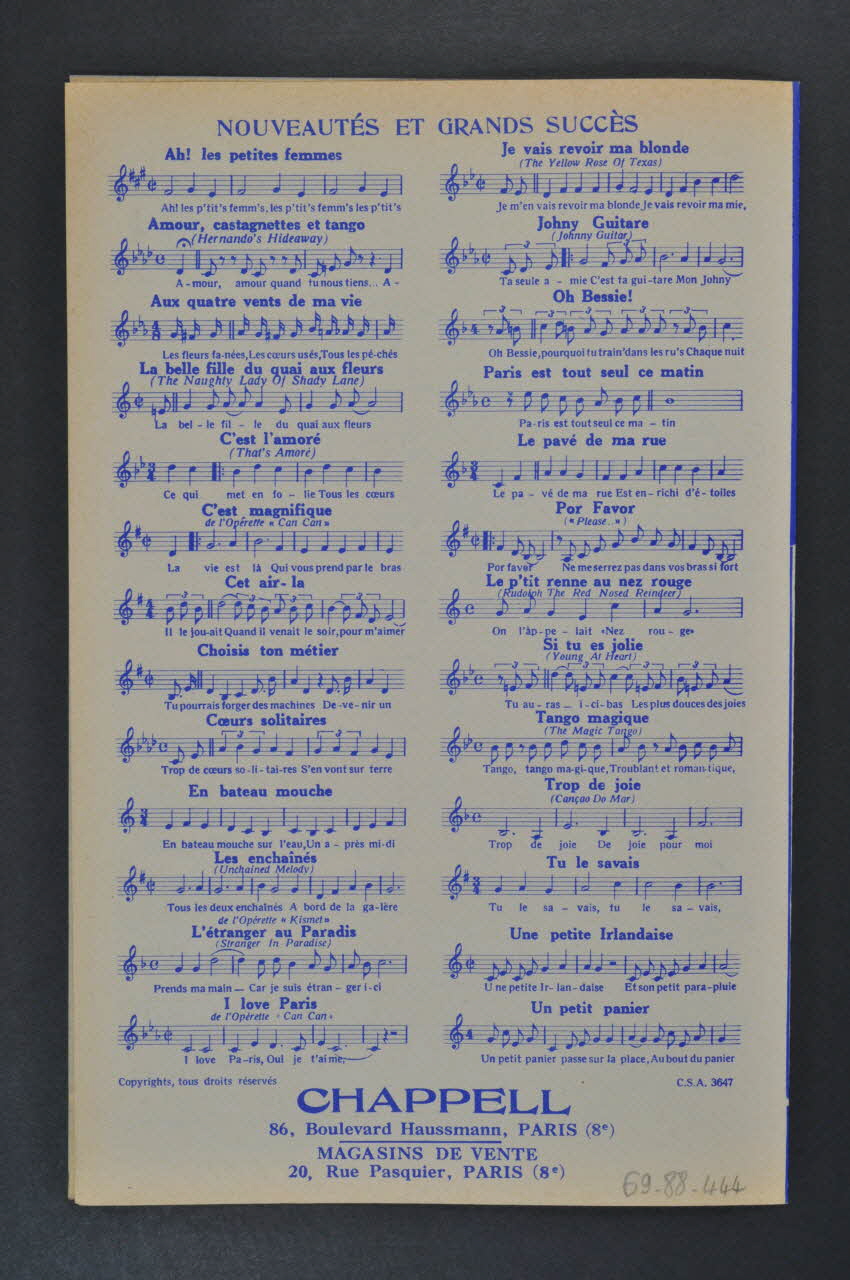 NOUVEAUTÉS ET GRANDS SUCCÈS
Ah! les petites femmes
Ah! les p'tit's femm's, les p'tit's femm's les p'tit's
Amour, castagnettes et tango
(Hernando's Hideaway)
A - mour, amour quand tu nous tiens... A -
Aux quatre vents de ma vie
Les fleurs fa-nées, Les cœurs usés, Tous les pé-chés
La belle fille du quai aux fleurs
(The Naughty Lady Of Shady Lane)
La bel - le fil - le du quai aux fleurs
C'est l'amoré
(That's Amoré)
Ce qui met en fo - lie Tous les cœurs
C'est magnifique
de l'Opérette « Can Can »
La vie est là Qui vous prend par le bras
Cet air-la
Il le jou-ait Quand il venait le soir, pour m'aimer
Choisis ton métier
Tu pourrais forger des machines De-ve-nir un
Cœurs solitaires
Trop de cœurs so-li-tai-res S'en vont sur terre
En bateau mouche
En bateau mouche sur l'eau, Un a - près mi-di
Les enchaînés
(Unchained Melody)
Tous les deux enchaînés A bord de la ga-lère
de l'Opérette « Kismet »
L'étranger au Paradis
(Stranger In Paradise)
Prends ma main — Car je suis étran - ger i-ci
I love Paris
de l'Opérette « Can Can »
I love Pa-ris, Oui je t'aime,
Je vais revoir ma blonde
(The Yellow Rose Of Texas)
Je m'en vais revoir ma blonde, Je vais revoir ma mie,
Johny Guitare
(Johnny Guitar)
Ta seule a - mie C'est ta gui-tare Mon Johny
Oh Bessie!
Oh Bessie, pourquoi tu train' dans les ru's Chaque nuit
Paris est tout seul ce matin
Pa-ris est tout seul ce ma - tin
Le pavé de ma rue
Le pa - vé de ma rue Est en - richi d'é-toiles
Por Favor
(« Please.. »)
Por favor Ne me serrez pas dans vos bras si fort
Le p'tit renne au nez rouge
(Rudolph The Red Nosed Reindeer)
On l'ap-pe - lait «Nez rou - ge»
Si tu es jolie
(Young At Heart)
Tu au-ras — i-ci-bas Les plus douces des joies
Tango magique
(The Magic Tango)
Tango, tango ma-gi-que, Troublant et roman-tique,
Trop de joie
(Cançao Do Mar)
Trop de joie De joie pour moi
Tu le savais
Tu le sa - vais, tu le sa - vais,
Une petite Irlandaise
Une petite Ir-lan-daise Et son petit para-pluie
Un petit panier
Un petit panier passe sur la place, Au bout du panier
Copyrights, tous droits réservés
C.S.A. 3647
CHAPPELL
86, Boulevard Haussmann, PARIS (8e)
MAGASINS DE VENTE
20, Rue Pasquier, PARIS (8e)
69-88-444